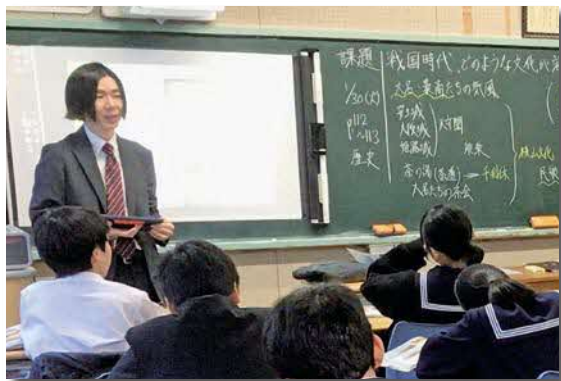 課題
戦国時代、どのような文化が
1/30(火)
p112
~113
歴史
大名・豪商たちの気風
安土城
大坂城
姫路城
天守閣
茶の湯(茶道)→千利休
大名たちの茶会
桃山文化